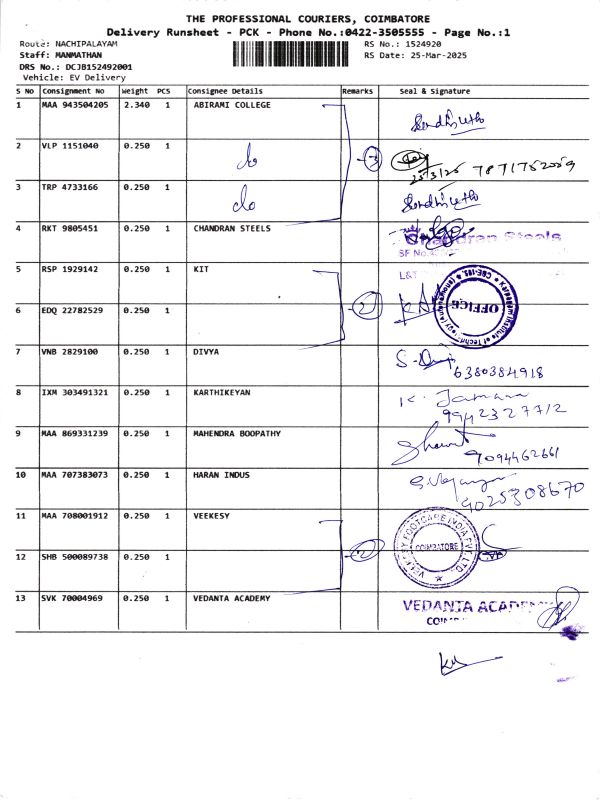 THE PROFESSIONAL COURIERS, COIMBATORE
Delivery Runsheet - PCK - Phone No.:0422-3505555 - Page No.:1
Route: NACHIPALAYAM
RS No.: 1524920
Staff: MANMATHAN
RS Date: 25-Mar-2025
DRS No.: DCJB152492001
Vehicle: EV Delivery
S No Consignment No Weight PCS Consignee Details Remarks Seal & Signature
1 MAA 943504205 2.340 1 ABIRAMI COLLEGE
2 VLP 1151040 0.250 1 do 3 25/3/25 7871752059
3 TRP 4733166 0.250 1 do
4 RKT 9805451 0.250 1 CHANDRAN STEELS Chandran Steels
SF No.
5 RSP 1929142 0.250 1 KIT L&T
2 OFFICE
6 EDQ 22782529 0.250 1
7 VNB 2829100 0.250 1 DIVYA
6380384918
8 IXM 303491321 0.250 1 KARTHIKEYAN
9942327712
9 MAA 869331239 0.250 1 MAHENDRA BOOPATHY
9094462661
10 MAA 707383073 0.250 1 HARAN INDUS
9025308670
11 MAA 708001912 0.250 1 VEEKESY VEEKESY FOOTCARE INDIA PVT. LTD.
2 COIMBATORE
12 SHB 500089738 0.250 1
13 SVK 70004969 0.250 1 VEDANTA ACADEMY VEDANTA ACADEMY